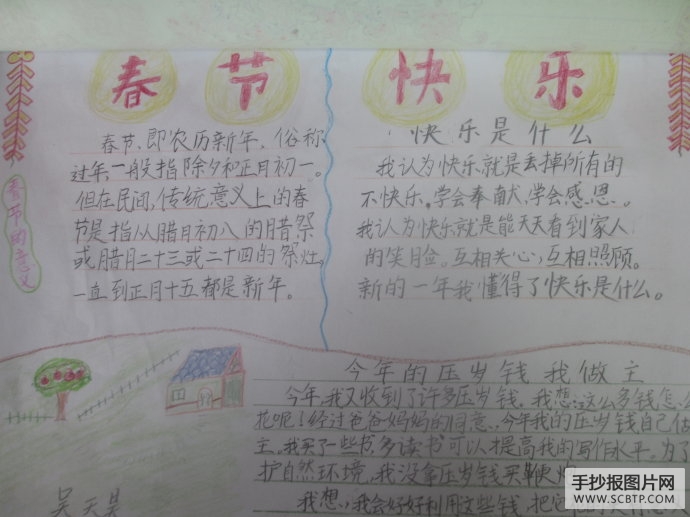 春节快乐
春节的意义
春节,即农历新年,俗称
过年,一般指除夕和正月初一。
但在民间,传统意义上的春
节是指从腊月初八的腊祭
或腊月二十三或二十四的祭灶,
一直到正月十五都是新年。
快乐是什么
我认为快乐就是丢掉所有的
不快乐。学会奉献,学会感恩。
我认为快乐就是能天天看到家人
的笑脸。互相关心,互相照顾。
新的一年我懂得了快乐是什么。
今年的压岁钱我做主
今年,我又收到了许多压岁钱。我想:这么多钱怎么
花呢!经过爸爸妈妈的同意,今年我的压岁钱自己做
主。我买了一些书,多读书可以提高我的写作水平。为了
护自然环境,我没拿压岁钱买鞭炮
我想,我会好好利用这些钱,把它
吴天昊
手抄报图片网
www.SCBTP.com